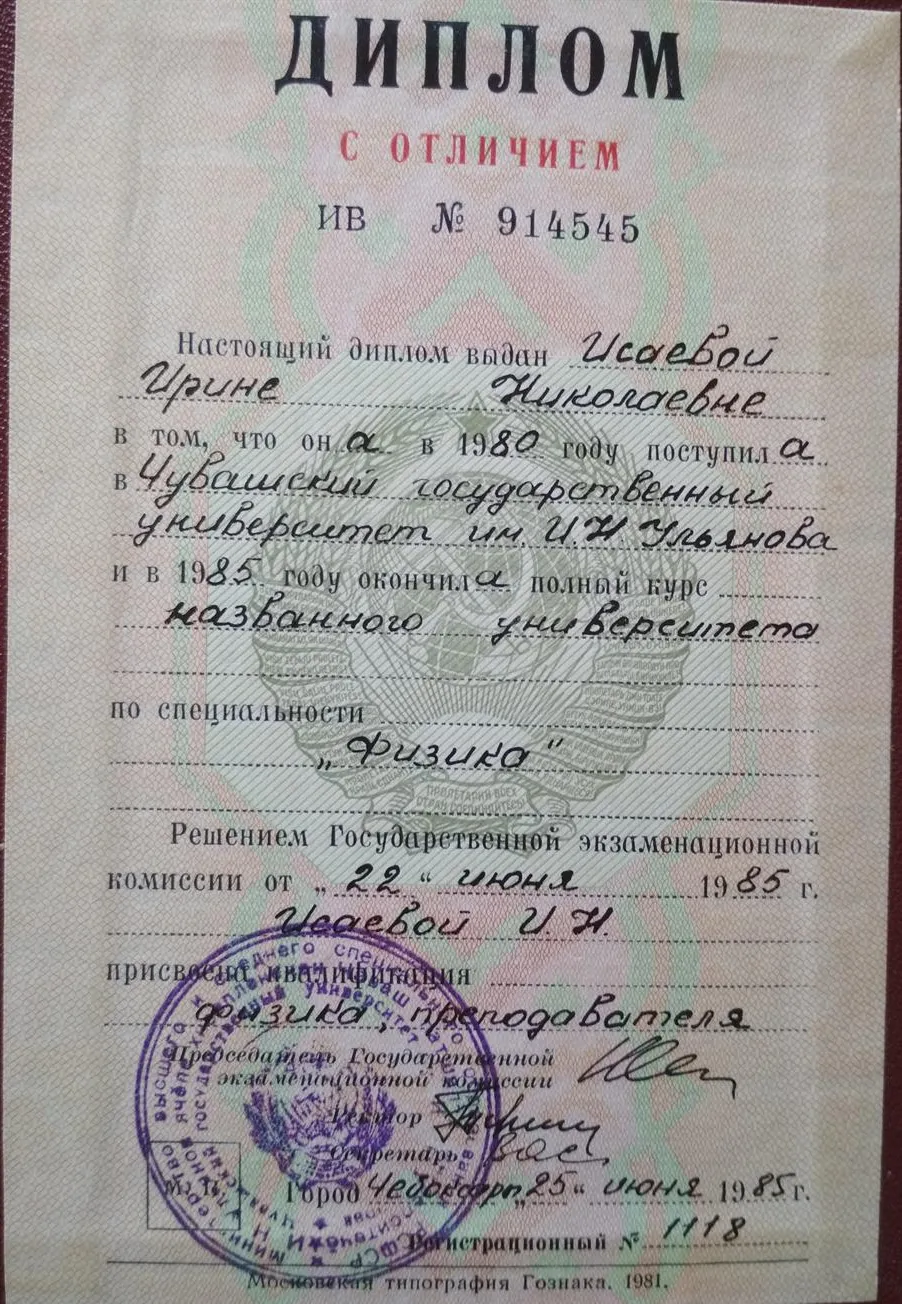 ДИПЛОМ
С ОТЛИЧИЕМ
ИВ № 914545
Настоящий диплом выдан Исаевой
Ирине Николаевне
в том, что она в 1980 году поступила
в Чувашский государственный
университет им. И.Н. Ульянова
и в 1985 году окончила полный курс
названного университета
по специальности
„Физика“
Решением Государственной экзаменационной
комиссии от „22“ июня 1985 г.
Исаевой И.Н.
присвоена квалификация
физика, преподавателя
Председатель Государственной
экзаменационной комиссии
Ректор
Секретарь
Город Чебоксары „25“ июня 1985 г.
Регистрационный № 1118
Московская типография Гознака. 1981.